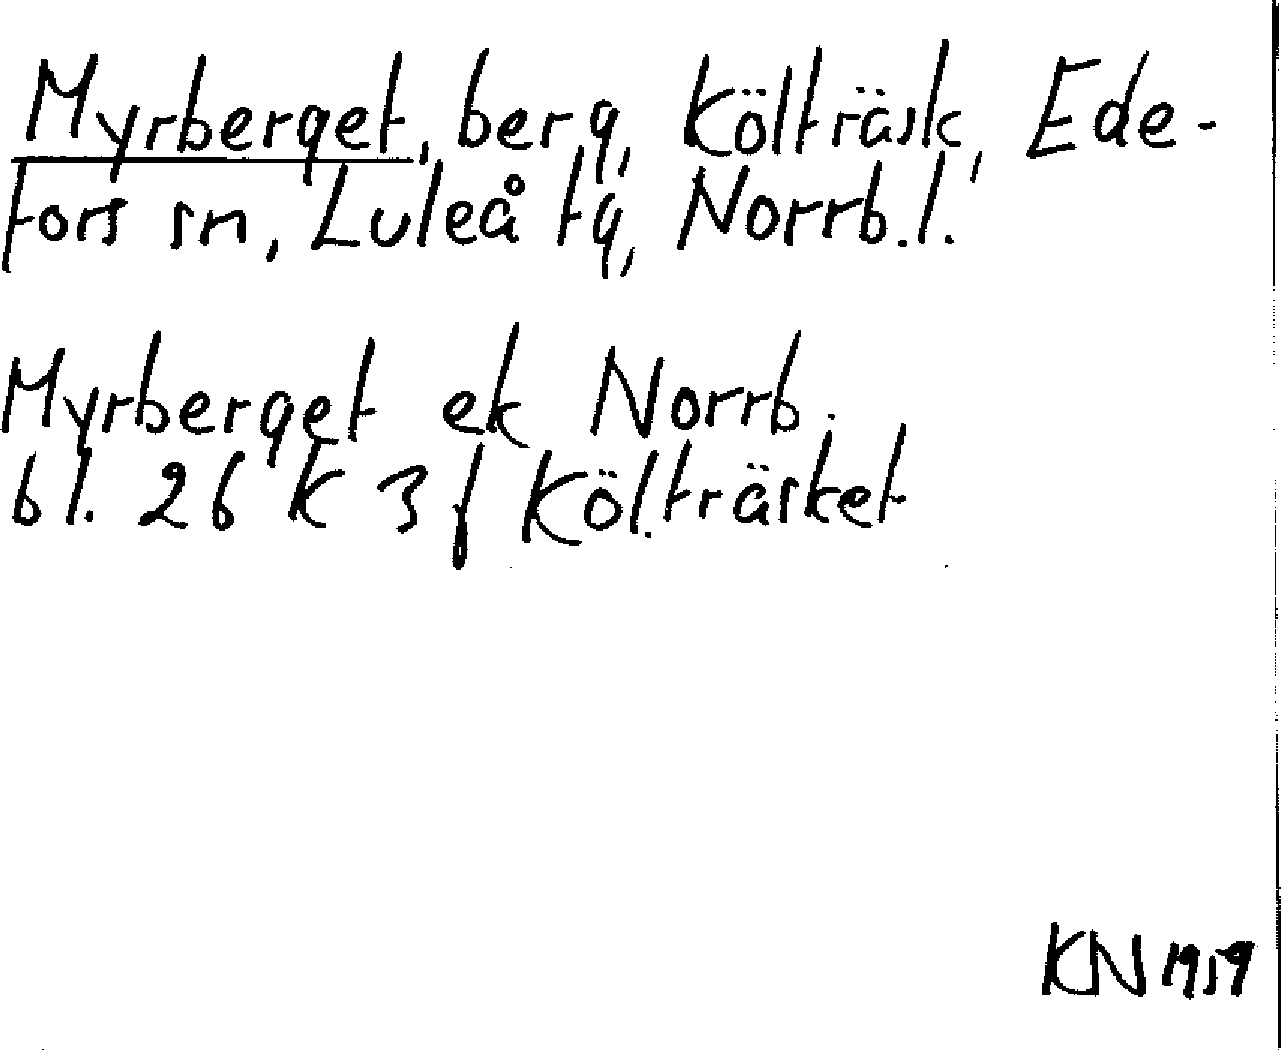 Myrberget, berg, Költräsk, Ede-
fors sn, Luleå tg, Norrb.l.
Myrberget ek Norrb.
bl. 26 K 3 f Költräsket
KN 1959